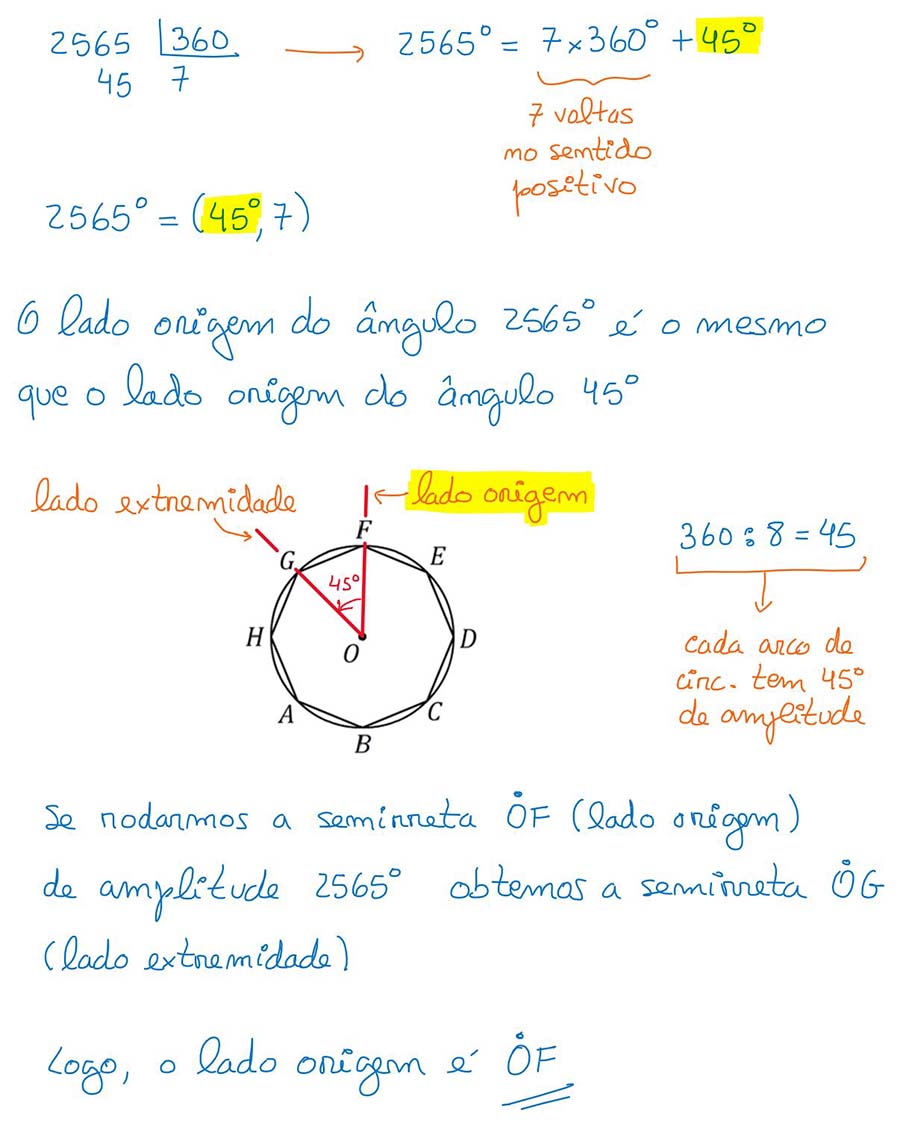 2565 360 → 2565° = 7×360° + 45°
45 7
7 voltas
no sentido
positivo
2565° = (45°, 7)
O lado origem do ângulo 2565° é o mesmo
que o lado origem do ângulo 45°
lado extremidade
lado origem
F
G
E
45°
H
D
O
A
C
B
360 : 8 = 45
cada arco de
circ. tem 45°
de amplitude
Se rodarmos a semirreta ȮF (lado origem)
de amplitude 2565° obtemos a semirreta ȮG
(lado extremidade)
Logo, o lado origem é ȮF